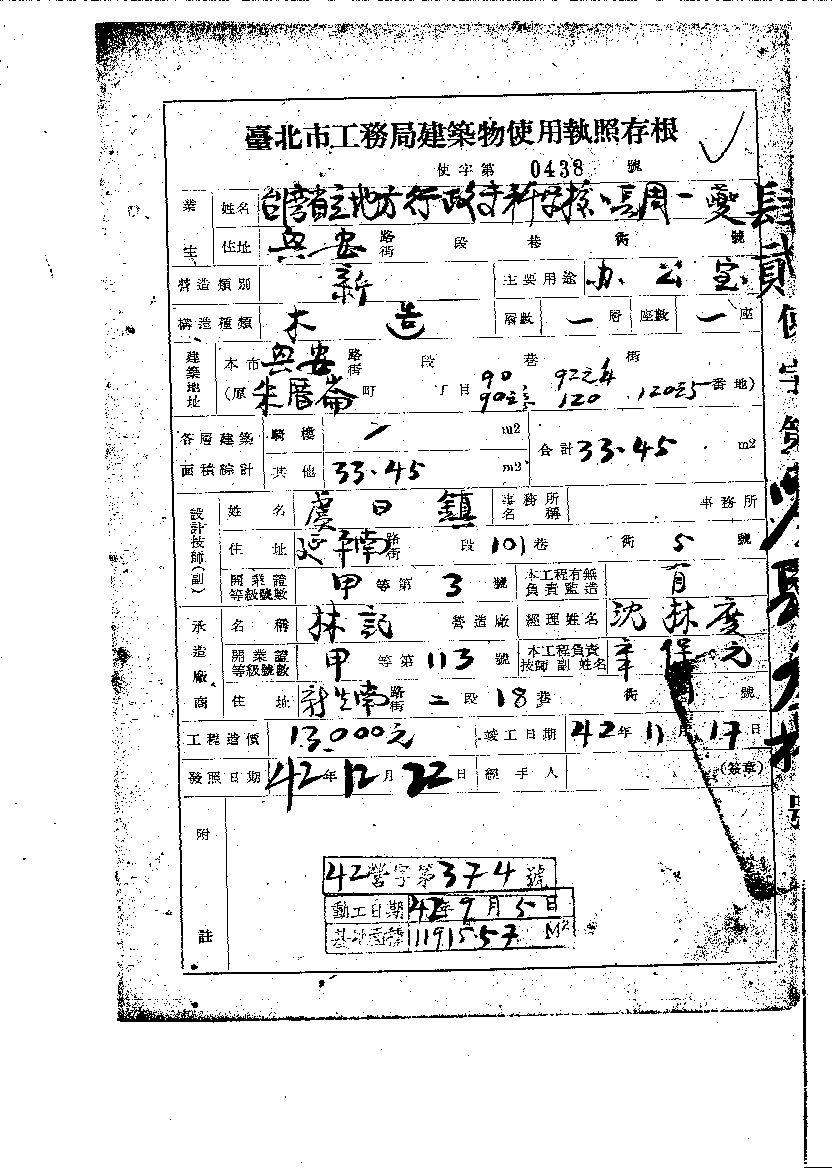 臺北市工務局建築物使用執照存根
使字第 0438 號
業主 姓名 台湾省立地方行政專科學校 長周一夔
住址 興安 路街 段 巷 衖 號
營造類別 新 主要用途 办公室
構造種類 木造 層數 一層 座數 一座
建築地址 本市 興安 路街 段 巷 衖
(原 朱厝崙 町 丁目 90 92之4 120 120之5 番地)
各層建築面積綜計 騎樓 / m2 合計 33.45 m2
其他 33.45 m2
設計技師(副) 姓名 虞曰鎮 事務所名稱 事務所
住址 延平南 路街 段 101 巷 衖 5 號
開業證等級號數 甲等第 3 號 本工程有無負責監造 有
承造廠商 名稱 林記 營造廠 經理姓名 沈林度
開業證等級號數 甲等第 113 號 本工程負責技師副姓名
住址 新生南 路街 二段 18 巷 衖 號
工程造價 13,000元 竣工日期 42年11月17日
發照日期 42年12月22日 經手人 (簽章)
附註
42營字第374號
動工日期 42年9月5日
肆貳使字第 號